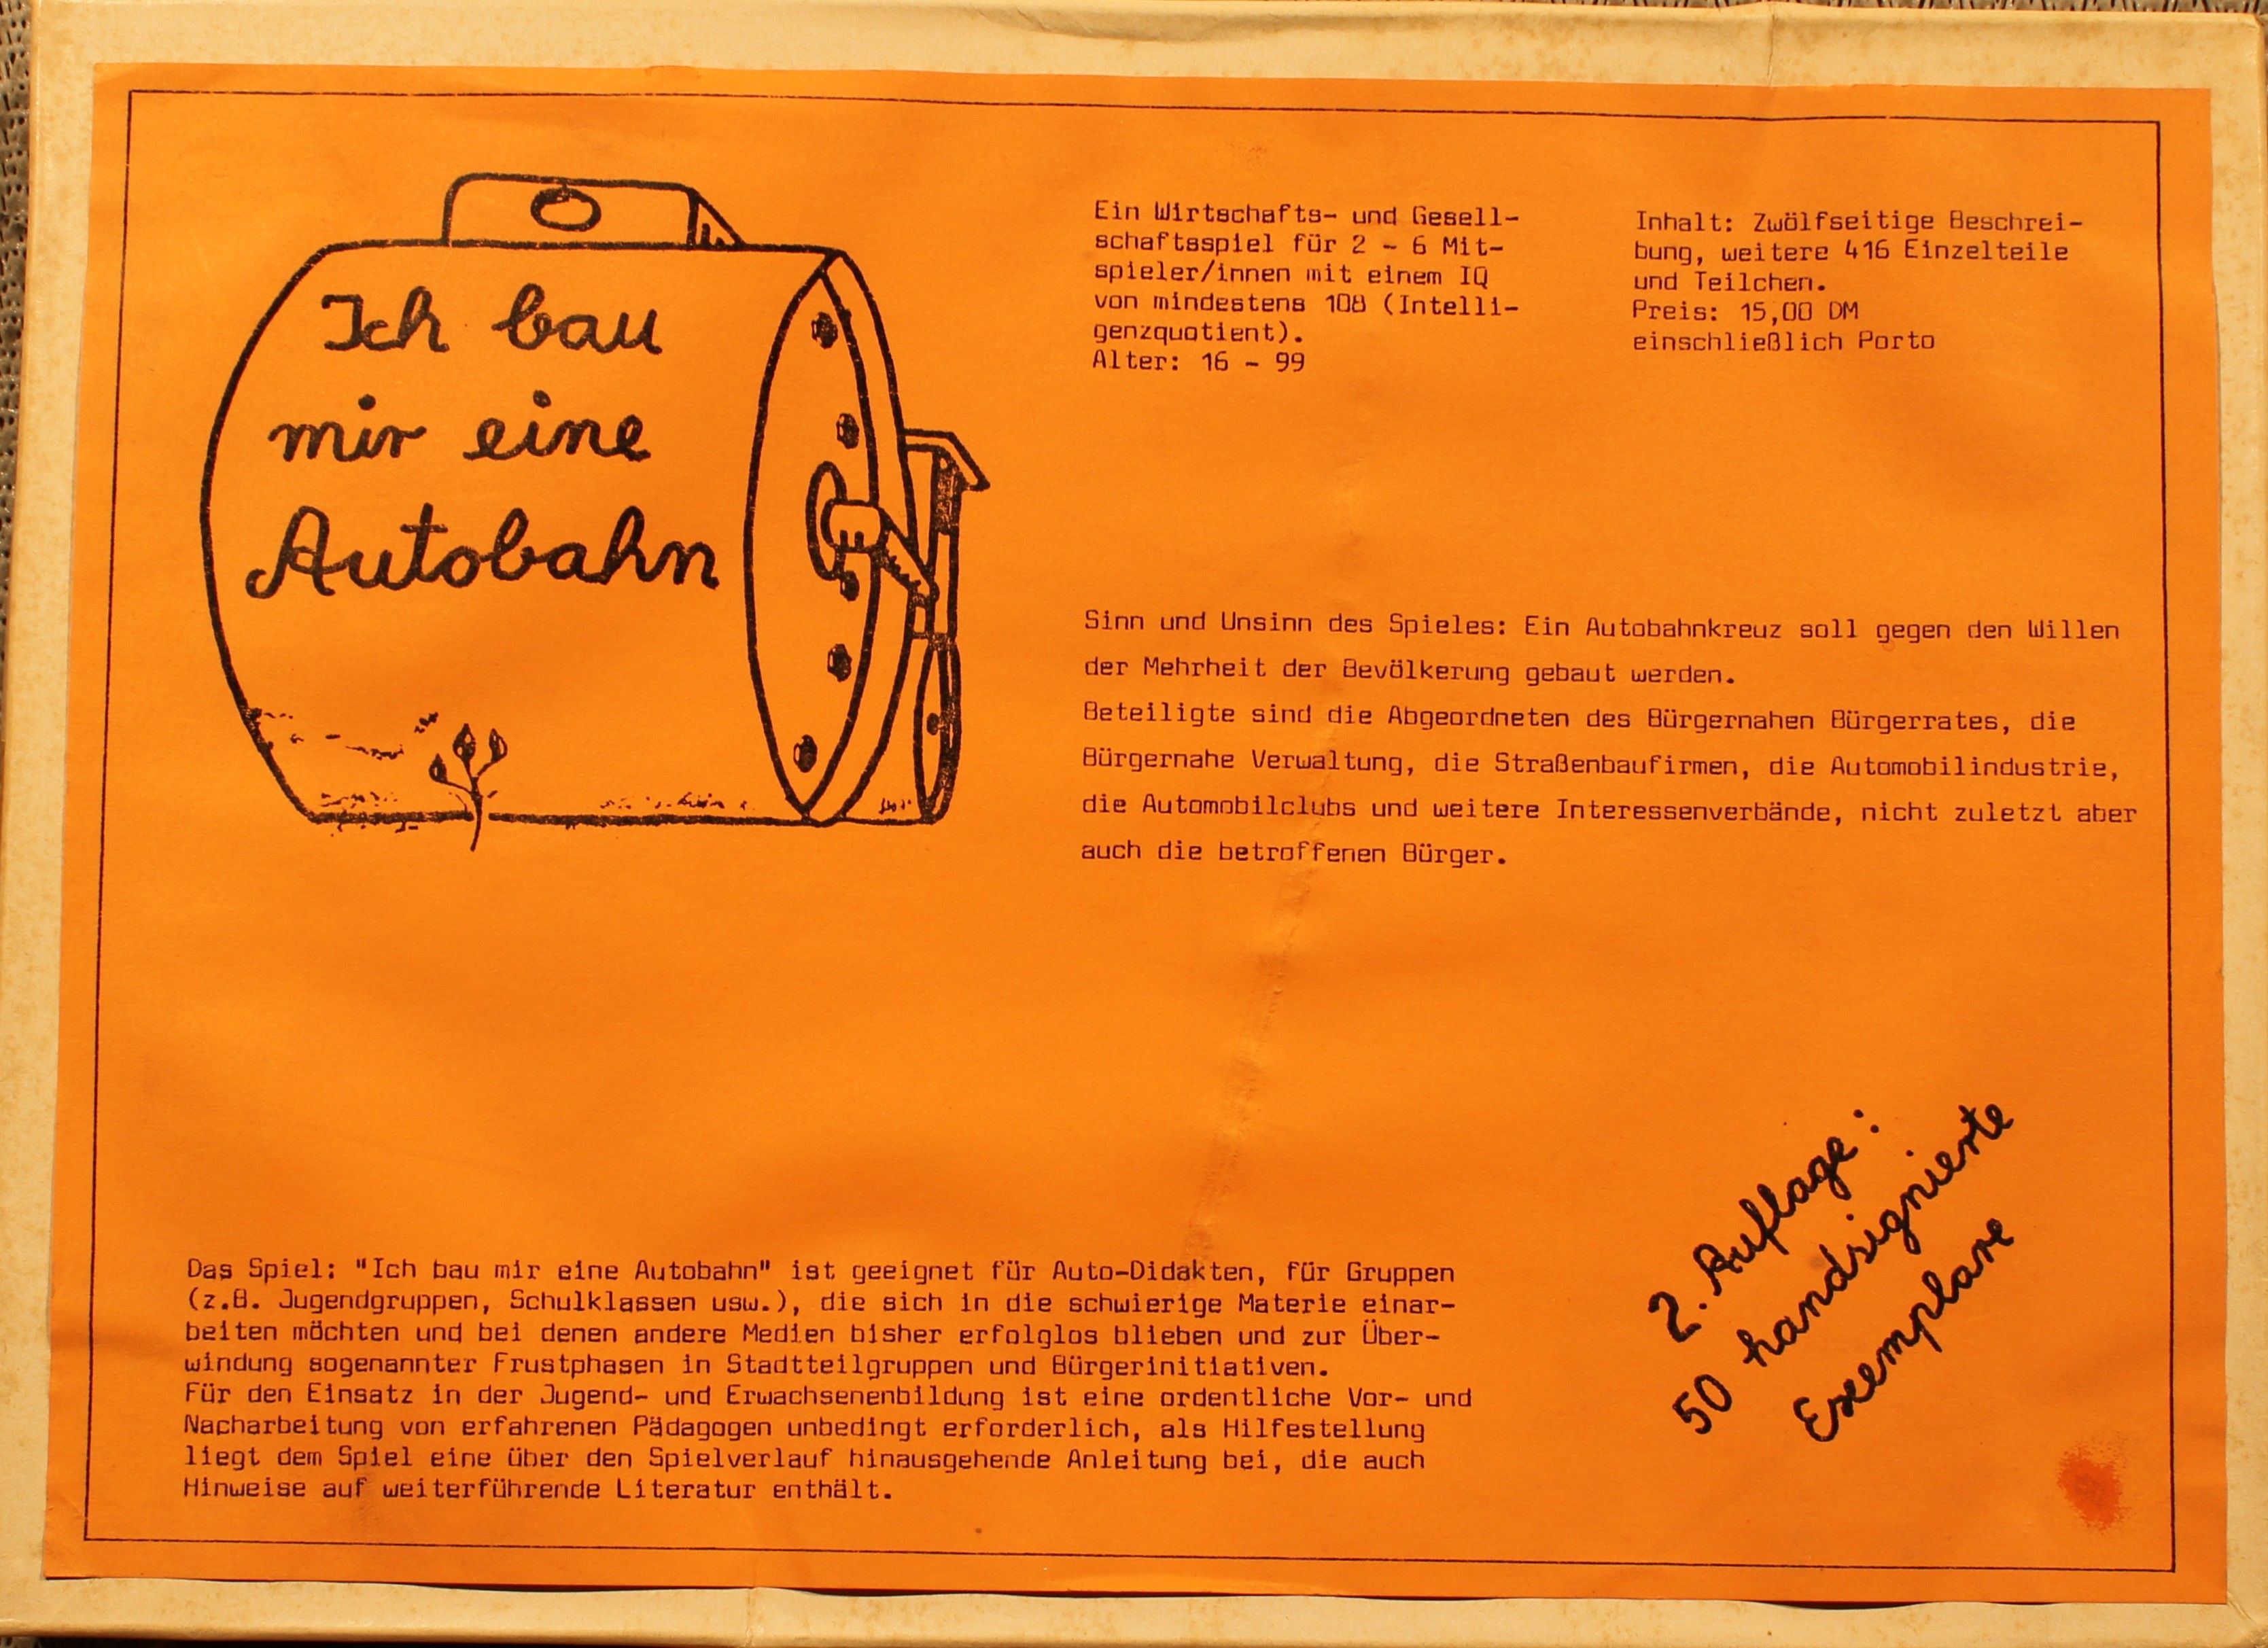 Ich bau
mir eine
Autobahn
Ein Wirtschafts- und Gesell-
schaftsspiel für 2 - 6 Mit-
spieler/innen mit einem IQ
von mindestens 108 (Intelli-
genzquotient).
Alter: 16 - 99
Inhalt: Zwölfseitige Beschrei-
bung, weitere 416 Einzelteile
und Teilchen.
Preis: 15,00 DM
einschließlich Porto
Sinn und Unsinn des Spieles: Ein Autobahnkreuz soll gegen den Willen
der Mehrheit der Bevölkerung gebaut werden.
Beteiligte sind die Abgeordneten des Bürgernahen Bürgerrates, die
Bürgernahe Verwaltung, die Straßenbaufirmen, die Automobilindustrie,
die Automobilclubs und weitere Interessenverbände, nicht zuletzt aber
auch die betroffenen Bürger.
Das Spiel: "Ich bau mir eine Autobahn" ist geeignet für Auto-Didakten, für Gruppen
(z.B. Jugendgruppen, Schulklassen usw.), die sich in die schwierige Materie einar-
beiten möchten und bei denen andere Medien bisher erfolglos blieben und zur Über-
windung sogenannter Frustphasen in Stadtteilgruppen und Bürgerinitiativen.
Für den Einsatz in der Jugend- und Erwachsenenbildung ist eine ordentliche Vor- und
Nacharbeitung von erfahrenen Pädagogen unbedingt erforderlich, als Hilfestellung
liegt dem Spiel eine über den Spielverlauf hinausgehende Anleitung bei, die auch
Hinweise auf weiterführende Literatur enthält.
2. Auflage:
50 handsignierte
Exemplare